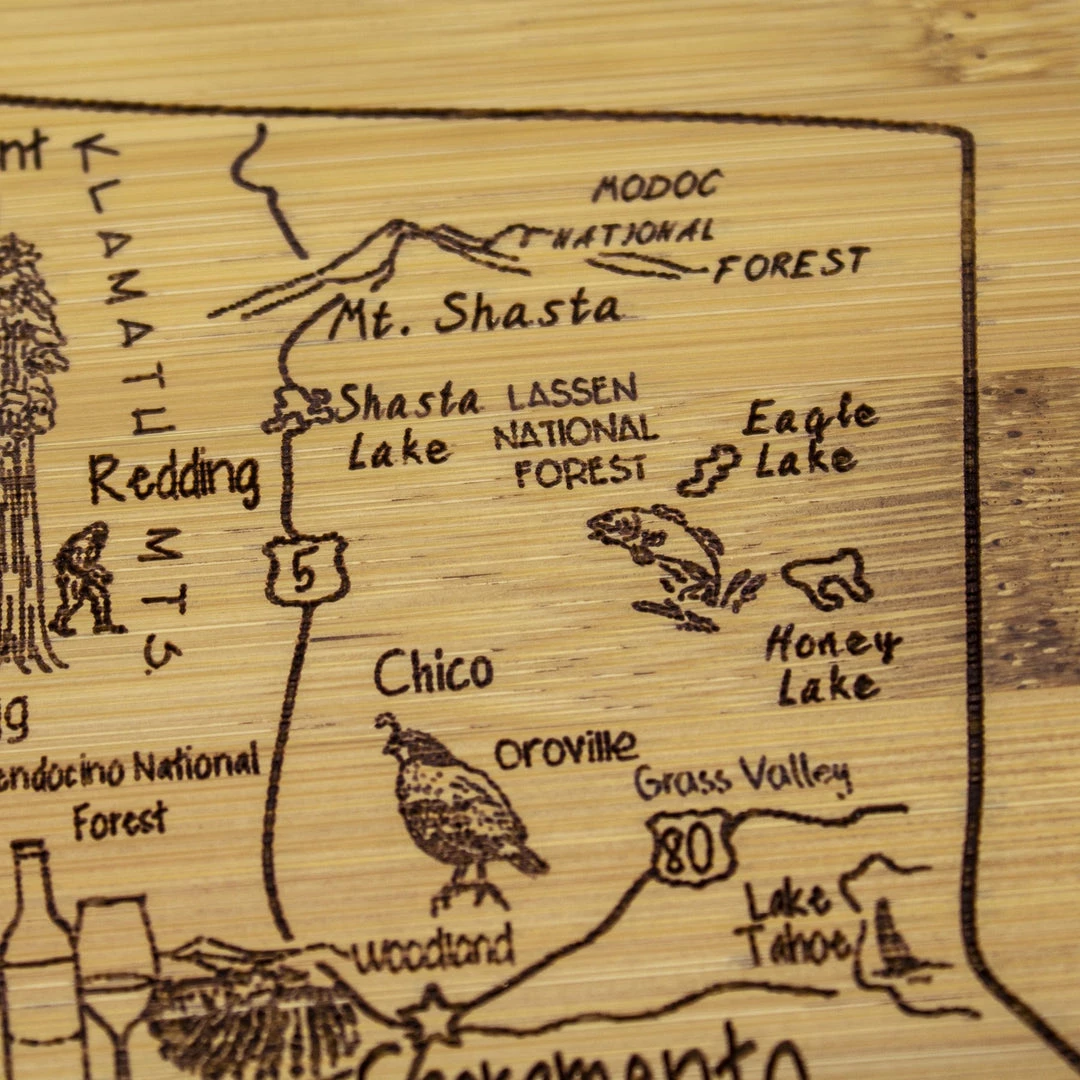 KLAMATH MTS.
MODOC
NATIONAL
FOREST
Mt. Shasta
Shasta
Lake
LASSEN
NATIONAL
FOREST
Eagle
Lake
Redding
5
Honey
Lake
Chico
Oroville
Grass Valley
endocino National
Forest
80
Lake
Tahoe
Woodland
Sacramento